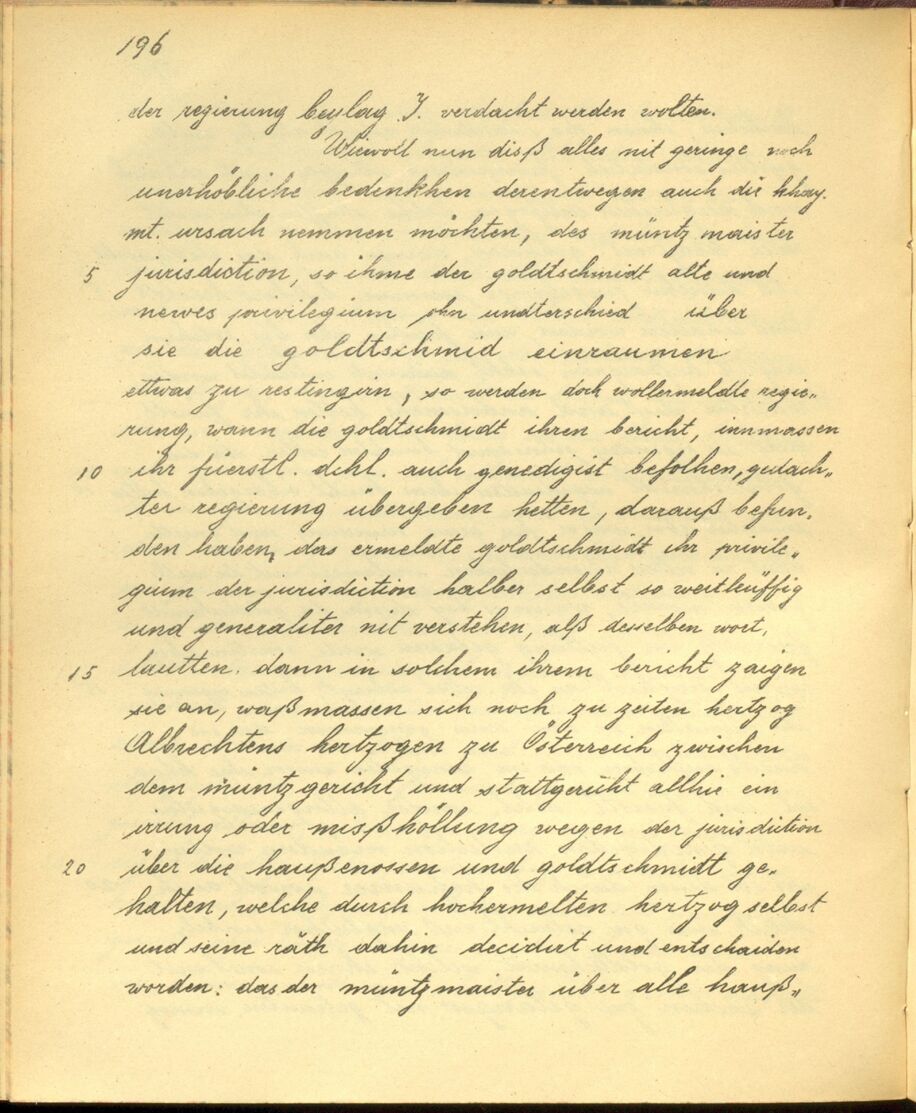 196
der regierung beylag J. verdacht werden wolten.
Wiewoll nun disß alles nit geringe noch
unerhöbliche bedenkhen derentwegen auch die khay.
mt. ursach nemmen möchten, des müntz maister
5 jurisdiction, so ihme der goldtschmidt alte und
newes privilegium ohn undterschied über
sie die goldtschmid einraumen
ettwas zu restingirn, so werden doch wollermeldte regie„
rung, wann die goldtschmidt ihren bericht, innmassen
10 ihr füerstl. dchl. auch genedigist befolhen, gedach„
ter regierung übergeben hetten, darauß befun„
den haben, das ermeldte goldtschmidt ihr privile„
gium der jurisdiction halber selbst so weitleüffig
und generaliter nit verstehen, alß desselben wort,
15 lautten. dann in solchem ihrem bericht zaigen
sie an, waßmassen sich noch zu zeiten hertzog
Albrechtens hertzogen zu Österreich zwischen
dem müntzgericht und stattgericht allhie ein
irrung oder mißhöllung wegen der jurisdiction
20 über die haußenossen und goldtschmidt ge„
halten, welche durch hochermelten hertzog selbst
und seine räth dahin decidirt und entschaiden
worden: das der müntzmaister über alle hauß„